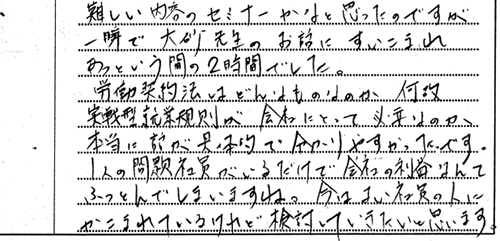 難しい内容のセミナーかなと思ったのですが
一瞬で大砂先生のお話にすいこまれ
あっという間の2時間でした。
労働契約法はどんなものなのか 何故
実戦型就業規則が会社にとって必要なのか、
本当に話が具体的で分かりやすかったです。
1人の問題社員がいるだけで会社の利益なんて
ふっとんでしまいますね。今はよい社員の人に
かこまれているけれど検討していきたいと思います。